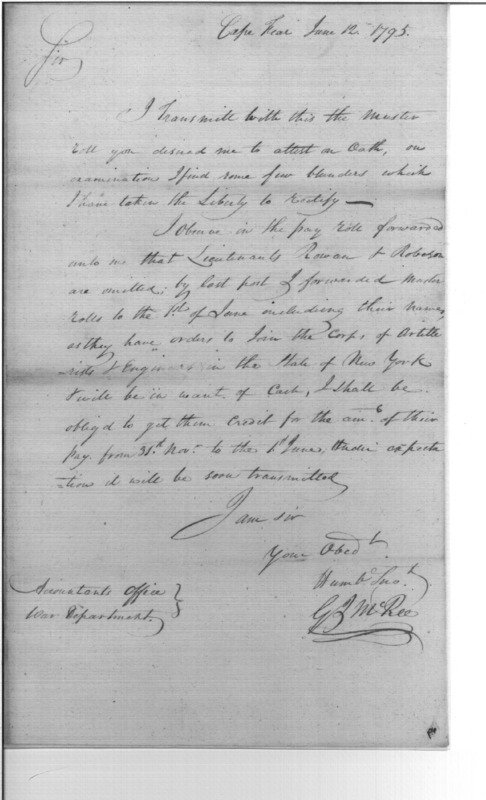 Cape Fear June 12. 1795.
Sir
I Transmitt with this the muster
roll you desired me to attest on Oath, on
examination I find some few blunders which
I have taken the Liberty to Rectify —
I observe in the pay roll forwarded
unto me that Lieutenants Rowan & Roberson
are omitted; by last post I forwarded muster
rolls to the 1st of June including their names,
as they have orders to Join the Corps of Artille
=rists & Engineers in the State of New York
& will be in want of Cash, I shall be
oblig'd to get them Credit for the amt. of their
Pay. from 31st Novr. to the 1st June, under expecta
=tion it will be soon transmitted
I am sir
Your Obedt
Humbe Sert.
G J McRee
Accountants Office }
War Department. }